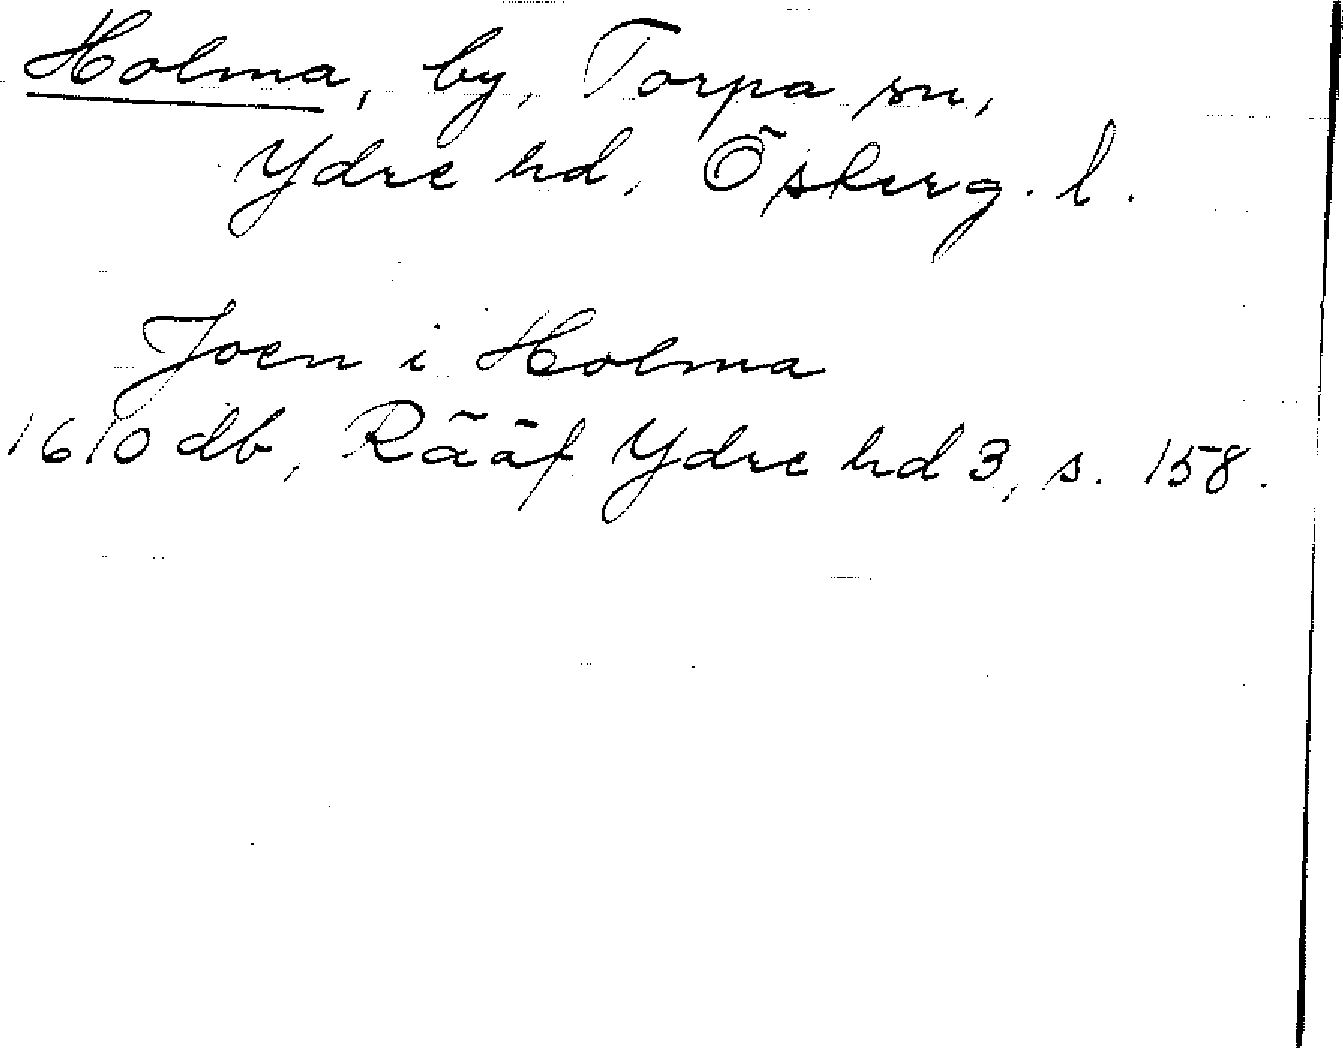 Holma, by, Torpa sn,
Ydre hd, Österg. l.
Joen i Holma
1610 db, Rääf Ydre hd 3, s. 158.